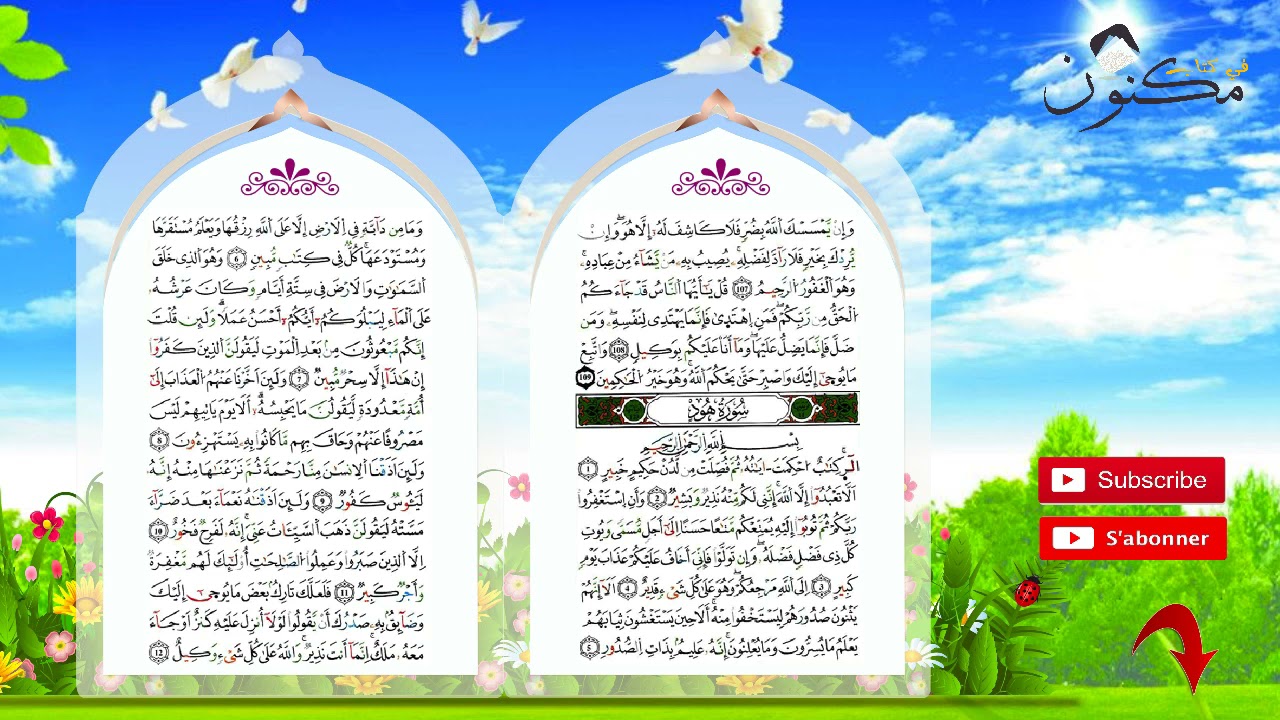 وَإِنْ يَّمْسَسْكَ اَللَّهُ بِضُرٍّ فَلَا كَاشِفَ لَهُۥٓ إِلَّا هُوَۖ وَإِنْ
يُّرِدْكَ بِخَيْرٍ فَلَا رَآدَّ لِفَضْلِهِۦۖ يُصِيبُ بِهِۦ مَنْ يَّشَآءُ مِنْ عِبَادِهِۦۖ
وَهُوَ اَلْغَفُورُ اُلرَّحِيمُۖ 107 قُلْ يَٰٓأَيُّهَا اَلنَّاسُ قَدْ جَآءَكُمُ
اُلْحَقُّ مِن رَّبِّكُمْۖ فَمَنِ اِهْتَدَىٰ فَإِنَّمَا يَهْتَدِے لِنَفْسِهِۦۖ وَمَن
ضَلَّ فَإِنَّمَا يَضِلُّ عَلَيْهَاۖ وَمَآ أَنَا عَلَيْكُم بِوَكِيلٍۖ 108 وَاتَّبِعْ
مَا يُوحَىٰٓ إِلَيْكَ وَاصْبِرْ حَتَّىٰ يَحْكُمَ اَللَّهُۖ وَهُوَ خَيْرُ اُلْحَٰكِمِينَۖ 109
سُورَةُ هُودٍ
بِسْمِ اِللَّهِ اِلرَّحْمَٰنِ اِلرَّحِيمِ
أَلَٓرۖ كِتَٰبٌ اُحْكِمَتَ اٰيَٰتُهُۥ ثُمَّ فُصِّلَتْ مِن لَّدُنْ حَكِيمٍ خَبِيرٍ 1
اَلَّا تَعْبُدُوٓاْ إِلَّا اَللَّهَۖ إِنَّنِے لَكُم مِّنْهُ نَذِيرٌ وَبَشِيرٌ 2 وَأَنِ اِسْتَغْفِرُواْ
رَبَّكُمْ ثُمَّ تُوبُوٓاْ إِلَيْهِ يُمَتِّعْكُم مَّتَٰعاً حَسَناً اِلَىٰٓ أَجَلٍ مُّسَمّىً وَيُوتِ
كُلَّ ذِے فَضْلٍ فَضْلَهُۥۖ وَإِن تَوَلَّوْاْ فَإِنِّيَ أَخَافُ عَلَيْكُمْ عَذَابَ يَوْمٍ
كَبِيرٍۖ 3 اِلَى اَللَّهِ مَرْجِعُكُمْۖ وَهُوَ عَلَىٰ كُلِّ شَےْءٍ قَدِيرٌۖ 4 اَلَآ إِنَّهُمْ
يَثْنُونَ صُدُورَهُمْ لِيَسْتَخْفُواْ مِنْهُۖ أَلَا حِينَ يَسْتَغْشُونَ ثِيَابَهُمْ
يَعْلَمُ مَا يُسِرُّونَ وَمَا يُعْلِنُونَۖ إِنَّهُۥ عَلِيمُۢ بِذَاتِ اِلصُّدُورِۖ 5
وَمَا مِن دَآبَّةٍ فِے اِلَارْضِ إِلَّا عَلَى اَللَّهِ رِزْقُهَا وَيَعْلَمُ مُسْتَقَرَّهَا
وَمُسْتَوْدَعَهَاۖ كُلٌّ فِے كِتَٰبٍ مُّبِينٍۖ 6 وَهُوَ اَلذِے خَلَقَ
اَلسَّمَٰوَٰتِ وَالَارْضَ فِے سِتَّةِ أَيَّامٍ وَكَانَ عَرْشُهُۥ
عَلَى اَلْمَآءِ لِيَبْلُوَكُمُۥٓ أَيُّكُمُۥٓ أَحْسَنُ عَمَلاًۖ وَلَئِن قُلْتَ
إِنَّكُم مَّبْعُوثُونَ مِنۢ بَعْدِ اِلْمَوْتِ لَيَقُولَنَّ اَلذِينَ كَفَرُوٓاْ
إِنْ هَٰذَآ إِلَّا سِحْرٌ مُّبِينٌۖ 7 وَلَئِنَ اَخَّرْنَا عَنْهُمُ اُلْعَذَابَ إِلَىٰٓ
أُمَّةٍ مَّعْدُودَةٍ لَّيَقُولُنَّ مَا يَحْبِسُهُۥٓۖ أَلَا يَوْمَ يَاتِيهِمْ لَيْسَ
مَصْرُوفاً عَنْهُمْ وَحَاقَ بِهِم مَّا كَانُواْ بِهِۦ يَسْتَهْزِءُونَۖ 8
وَلَئِنَ اَذَقْنَا اَلِانسَٰنَ مِنَّا رَحْمَةً ثُمَّ نَزَعْنَٰهَا مِنْهُ إِنَّهُۥ
لَيَـُٔوسٌ كَفُورٌۖ 9 وَلَئِنَ اَذَقْنَٰهُ نَعْمَآءَ بَعْدَ ضَرَّآءَ
مَسَّتْهُ لَيَقُولَنَّ ذَهَبَ اَلسَّيِّـَٔاتُ عَنِّيَۖ إِنَّهُۥ لَفَرِحٌ فَخُورٌ 10
اِلَّا اَلذِينَ صَبَرُواْ وَعَمِلُواْ اُلصَّٰلِحَٰتِ أُوْلَٰٓئِكَ لَهُم مَّغْفِرَةٌ
وَأَجْرٌ كَبِيرٌۖ 11 فَلَعَلَّكَ تَارِكُۢ بَعْضَ مَا يُوحَىٰٓ إِلَيْكَ
وَضَآئِقُۢ بِهِۦ صَدْرُكَ أَنْ يَّقُولُواْ لَوْلَآ أُنزِلَ عَلَيْهِ كَنزٌ اَوْ جَآءَ
مَعَهُۥ مَلَكٌۖ اِنَّمَآ أَنتَ نَذِيرٌۖ وَاللَّهُ عَلَىٰ كُلِّ شَےْءٍ وَكِيلٌۖ 12
في كتاب
مكنون
Subscribe
S'abonner